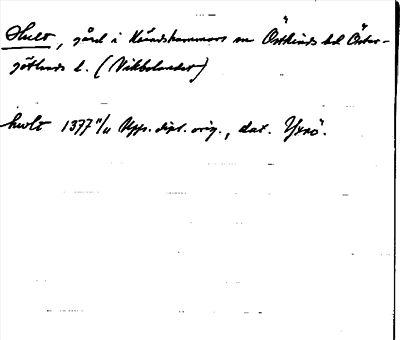 Hult, gård i Kvädshammars sn Östkinds hd Öster-
götlands l. (Vikbolandet)
hwlt 1377 11/11 Upps. dipl. orig., dat. Yxnö.